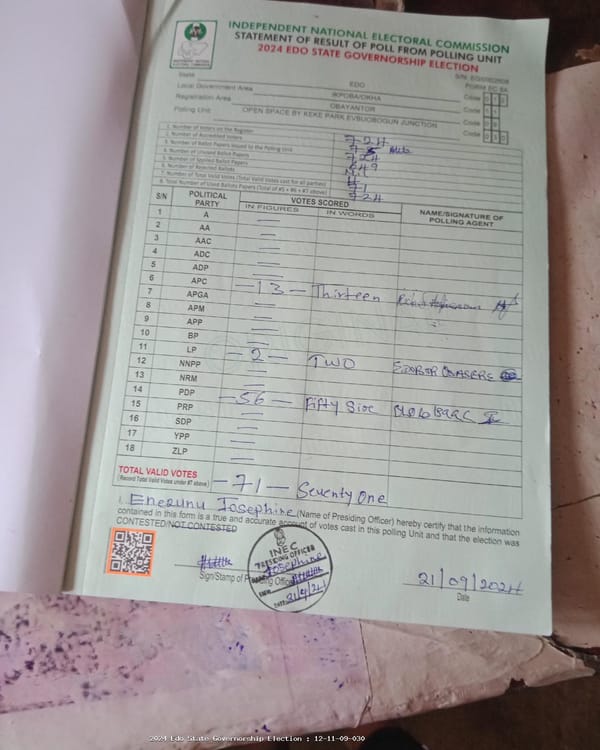 INDEPENDENT NATIONAL ELECTORAL COMMISSION
STATEMENT OF RESULT OF POLL FROM POLLING UNIT
2024 EDO STATE GOVERNORSHIP ELECTION
FORM EC 8A
State EDO Code
Local Government Area IKPOBA/OKHA Code
Registration Area OBAYANTOR Code
Polling Unit OPEN SPACE BY KEKE PARK EVBUOBOGUN JUNCTION Code
1. Number of Voters on the Register 724
2. Number of Accredited Voters
3. Number of Ballot Papers Issued to the Polling Unit 724
4. Number of Unused Ballot Papers 649
5. Number of Spoiled Ballot Papers Nil
6. Number of Rejected Ballots 4
7. Number of Total Valid Votes (Total Valid Votes cast for all parties) 71
8. Total Number of Used Ballots Papers (Total of #5 + #6 + #7 above)
S/N POLITICAL PARTY VOTES SCORED NAME/SIGNATURE OF POLLING AGENT
IN FIGURES IN WORDS
1 A —
2 AA —
3 AAC —
4 ADC —
5 ADP —
6 APC -13- Thirteen
7 APGA —
8 APM —
9 APP —
10 BP —
11 LP -2- TWO
12 NNPP —
13 NRM —
14 PDP -56- Fifty Six
15 PRP —
16 SDP —
17 YPP —
18 ZLP —
TOTAL VALID VOTES -71- Seventy One
(Record Total Valid Votes under #7 above)
I, Enezunu Josephine (Name of Presiding Officer) hereby certify that the information
contained in this form is a true and accurate account of votes cast in this polling Unit and that the election was
CONTESTED/NOT CONTESTED
INEC
PRESIDING OFFICER
Josephine
DATE 21/9/24
Sign/Stamp of Presiding Officer
21/09/2024
Date
2024 Edo State Governorship Election : 12-11-09-030